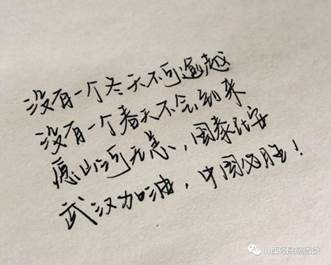 没有一个冬天不可逾越
没有一个春天不会到来
愿山河无恙，国泰民安
武汉加油，中国必胜！